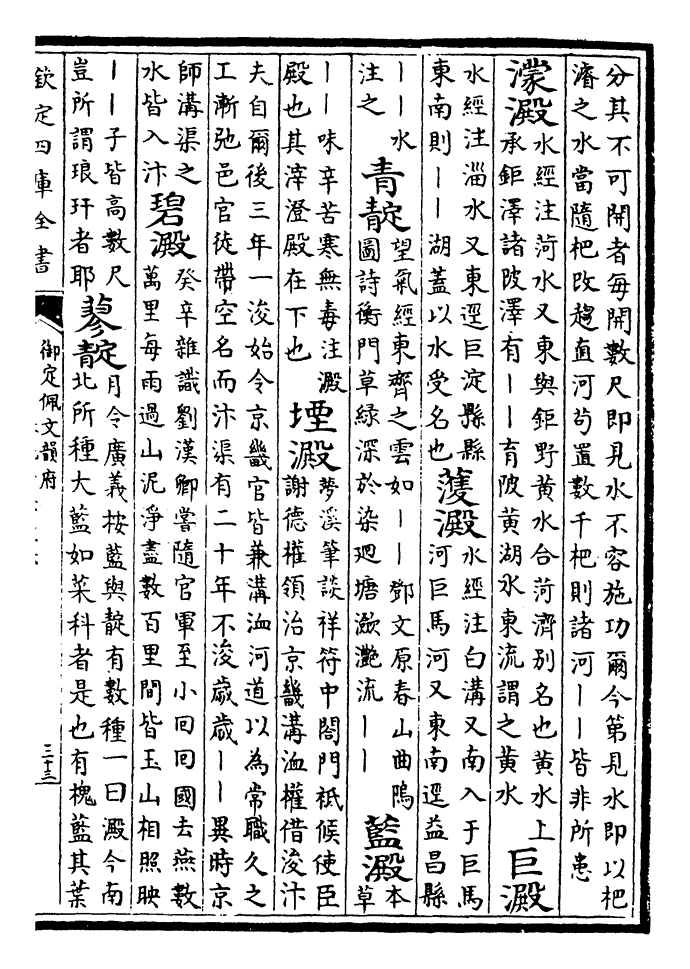 分其不可開者每開數尺即見水不容施功爾今第見水即以杷
濬之水當隨杷改趨直河苟置數千杷則諸河丨丨皆非所患
濛澱
水經注菏水又東與鉅野黄水合菏濟别名也黄水上
承鉅澤諸陂澤有丨丨育陂黄湖水東流謂之黄水
巨澱
水經注淄水又東逕巨淀縣縣
東南則丨丨湖蓋以水受名也
濩澱
水經注白溝又南入于巨馬
河巨馬河又東南逕益昌縣
丨丨水
注之
青靛
望氣經東齊之雲如丨丨鄧文原春山曲塢
圖詩衡門草緑深於染廻塘瀲灔流丨丨
藍澱
本
草
丨丨味辛苦寒無毒注澱
殿也其滓澄殿在下也
堙澱
夢溪筆談祥符中閤門祗候使臣
謝德權領治京畿溝洫權借浚汴
夫自爾後三年一浚始令京畿官皆兼溝洫河道以為常職久之
工漸弛邑官徒帶空名而汴渠有二十年不浚歲歲丨丨異時京
師溝渠之
水皆入汴
碧澱
癸辛雜識劉漢卿嘗隨官軍至小回回國去燕數
萬里每雨過山泥淨盡數百里間皆玉山相照映
丨丨子皆高數尺
豈所謂琅玕者耶
蓼靛
月令廣義按藍與靛有數種一曰澱今南
北所種大藍如菜科者是也有槐藍其葉
欽定四庫全書
御定佩文韻府
三十三